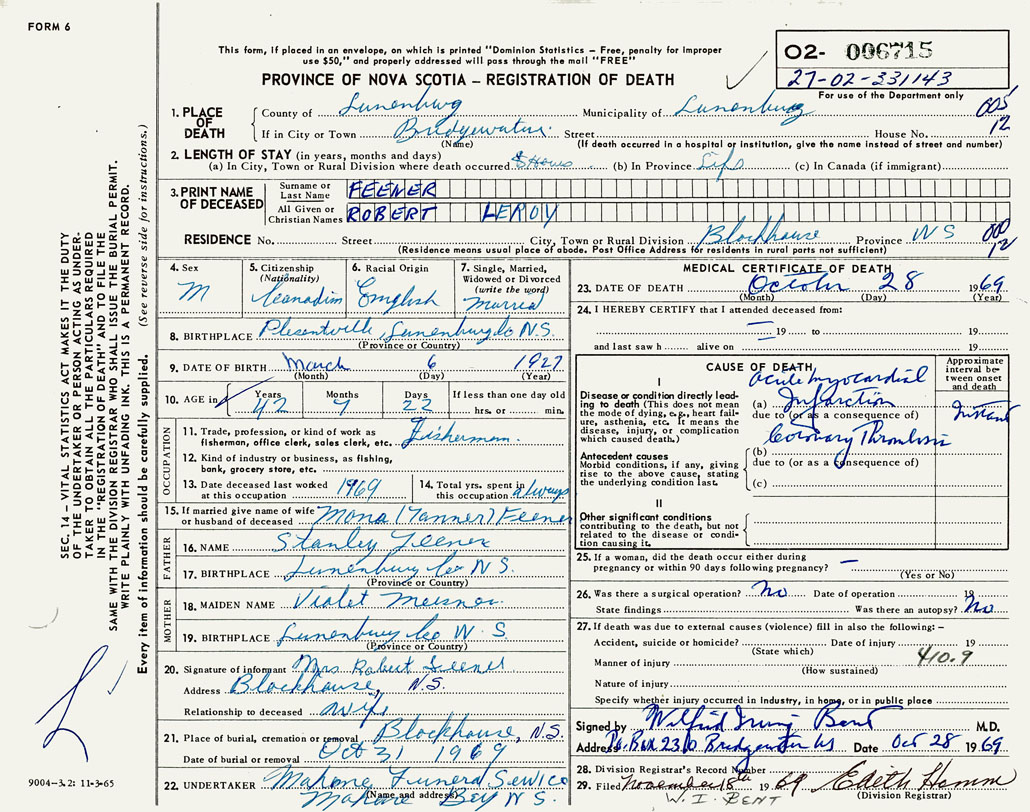 FORM 6
This form, if placed in an envelope, on which is printed "Dominion Statistics – Free, penalty for improper
use $50," and properly addressed will pass through the mail "FREE"
PROVINCE OF NOVA SCOTIA – REGISTRATION OF DEATH
02- 006715
27-02-331143
For use of the Department only
1. PLACE OF DEATH County of Lunenburg Municipality of Lunenburg 605
If in City or Town Bridgewater Street House No. 12
(Name) (If death occurred in a hospital or institution, give the name instead of street and number)
2. LENGTH OF STAY (in years, months and days)
(a) In City, Town or Rural Division where death occurred Hours (b) In Province Life (c) In Canada (if immigrant)
3. PRINT NAME OF DECEASED Surname or Last Name FEENER
All Given or Christian Names ROBERT LEROY
RESIDENCE No. Street City, Town or Rural Division Blockhouse Province NS 000 12
(Residence means usual place of abode. Post Office Address for residents in rural parts not sufficient)
4. Sex M
5. Citizenship (Nationality) Canadian
6. Racial Origin English
7. Single, Married, Widowed or Divorced (write the word) Married
8. BIRTHPLACE Plesentville, Lunenburg Co N.S.
(Province or Country)
9. DATE OF BIRTH March 6 1927
(Month) (Day) (Year)
10. AGE in Years 42 Months 7 Days 22 If less than one day old hrs. or min.
OCCUPATION
11. Trade, profession, or kind of work as fisherman, office clerk, sales clerk, etc. Fisherman.
12. Kind of industry or business, as fishing, bank, grocery store, etc.
13. Date deceased last worked at this occupation 1969
14. Total yrs. spent in this occupation always
15. If married give name of wife or husband of deceased Mona (Tanner) Feener
FATHER
16. NAME Stanley Feener
17. BIRTHPLACE Lunenburg Co N S.
(Province or Country)
MOTHER
18. MAIDEN NAME Violet Meisner
19. BIRTHPLACE Lunenburg Co N. S.
(Province or Country)
20. Signature of informant Mrs Robert Feener
Address Blockhouse, N.S.
Relationship to deceased wife
21. Place of burial, cremation or removal Blockhouse, N.S.
Date of burial or removal Oct 31 1969
22. UNDERTAKER Mahone Funeral Service
(Name and address) Mahone Bay N S.
MEDICAL CERTIFICATE OF DEATH
23. DATE OF DEATH October 28 1969
(Month) (Day) (Year)
24. I HEREBY CERTIFY that I attended deceased from:
— 19 to 19
and last saw h alive on — 19
CAUSE OF DEATH
Approximate interval between onset and death
I
Disease or condition directly leading to death (This does not mean the mode of dying, e.g., heart failure, asthenia, etc. It means the disease, injury, or complication which caused death.)
(a) Acute Myocardial Infarction Instant
due to (or as a consequence of)
Antecedent causes
Morbid conditions, if any, giving rise to the above cause, stating the underlying condition last.
(b) Coronary Thrombosis
due to (or as a consequence of)
(c)
II
Other significant conditions contributing to the death, but not related to the disease or condition causing it.
25. If a woman, did the death occur either during pregnancy or within 90 days following pregnancy? —
(Yes or No)
26. Was there a surgical operation? No Date of operation 19
State findings Was there an autopsy? No
27. If death was due to external causes (violence) fill in also the following: –
Accident, suicide or homicide? Date of injury 19
(State which)
Manner of injury 410.9
(How sustained)
Nature of injury
Specify whether injury occurred in Industry, in home, or in public place
Signed by Wilfrid Irving Bent M.D.
Address P.O. Box 230 Bridgewater NS Date Oct 28 1969
28. Division Registrar's Record Number
29. Filed November 19 69 Edith Hamm
(Division Registrar)
W. I. BENT
SEC. 14 – VITAL STATISTICS ACT MAKES IT THE DUTY
OF THE UNDERTAKER OR PERSON ACTING AS UNDER-
TAKER TO OBTAIN ALL THE PARTICULARS REQUIRED
IN THE "REGISTRATION OF DEATH" AND TO FILE THE
SAME WITH THE DIVISION REGISTRAR WHO SHALL ISSUE THE BURIAL PERMIT.
WRITE PLAINLY WITH UNFADING INK. THIS IS A PERMANENT RECORD.
Every item of information should be carefully supplied. (See reverse side for instructions.)
9004-3.2: 11-3-65